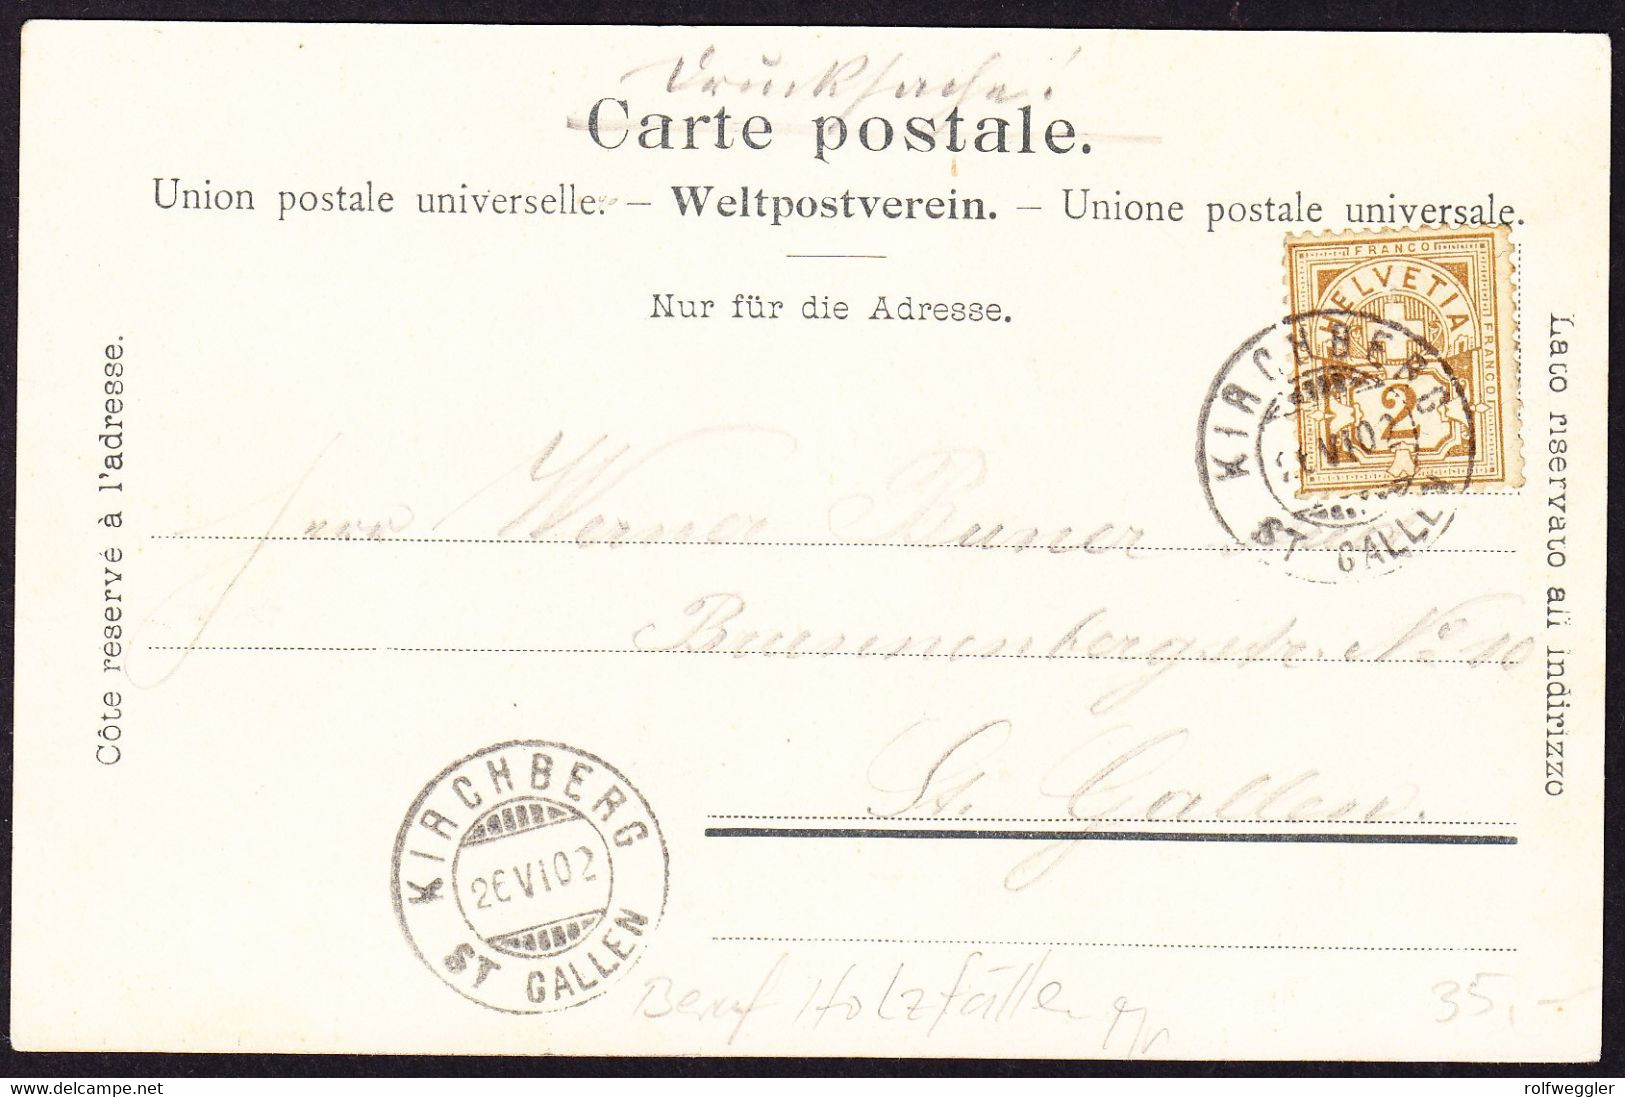 Drucksache!
Carte postale.
Union postale universelle. – Weltpostverein. – Unione postale universale.
Nur für die Adresse.
Côte reservé à l'adresse.
Lato riservato all indirizzo
FRANCO
HELVETIA
FRANCO
2
KIRCHBERG
VI 02
ST GALLEN
Herr Werner Buner
Brunnenbergstr. No 10
St. Gallen.
KIRCHBERG
26 VI 02
ST GALLEN
Beruf Holzfäller
35.-
delcampe.net
rolfweggler